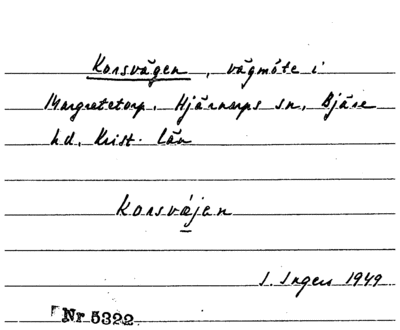 Korsvägen, vägmöte i
Margretetorp, Hjärnarps sn, Bjäre
hd, Krist. län
Korsväjen
I. Ingers 1949
Nr 5322